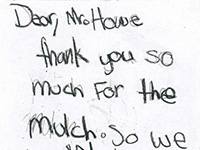 Dear, Mr. Howe
thank you so
much For the
mulch. So we